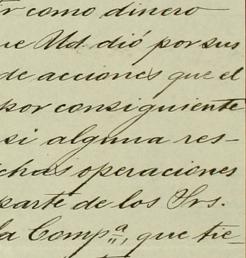 como dinero
ue Ud. dió por sus
de acciones que el
por consiguiente
si alguna res-
chas operaciones
parte de los Srs.
la Compª, que tie-